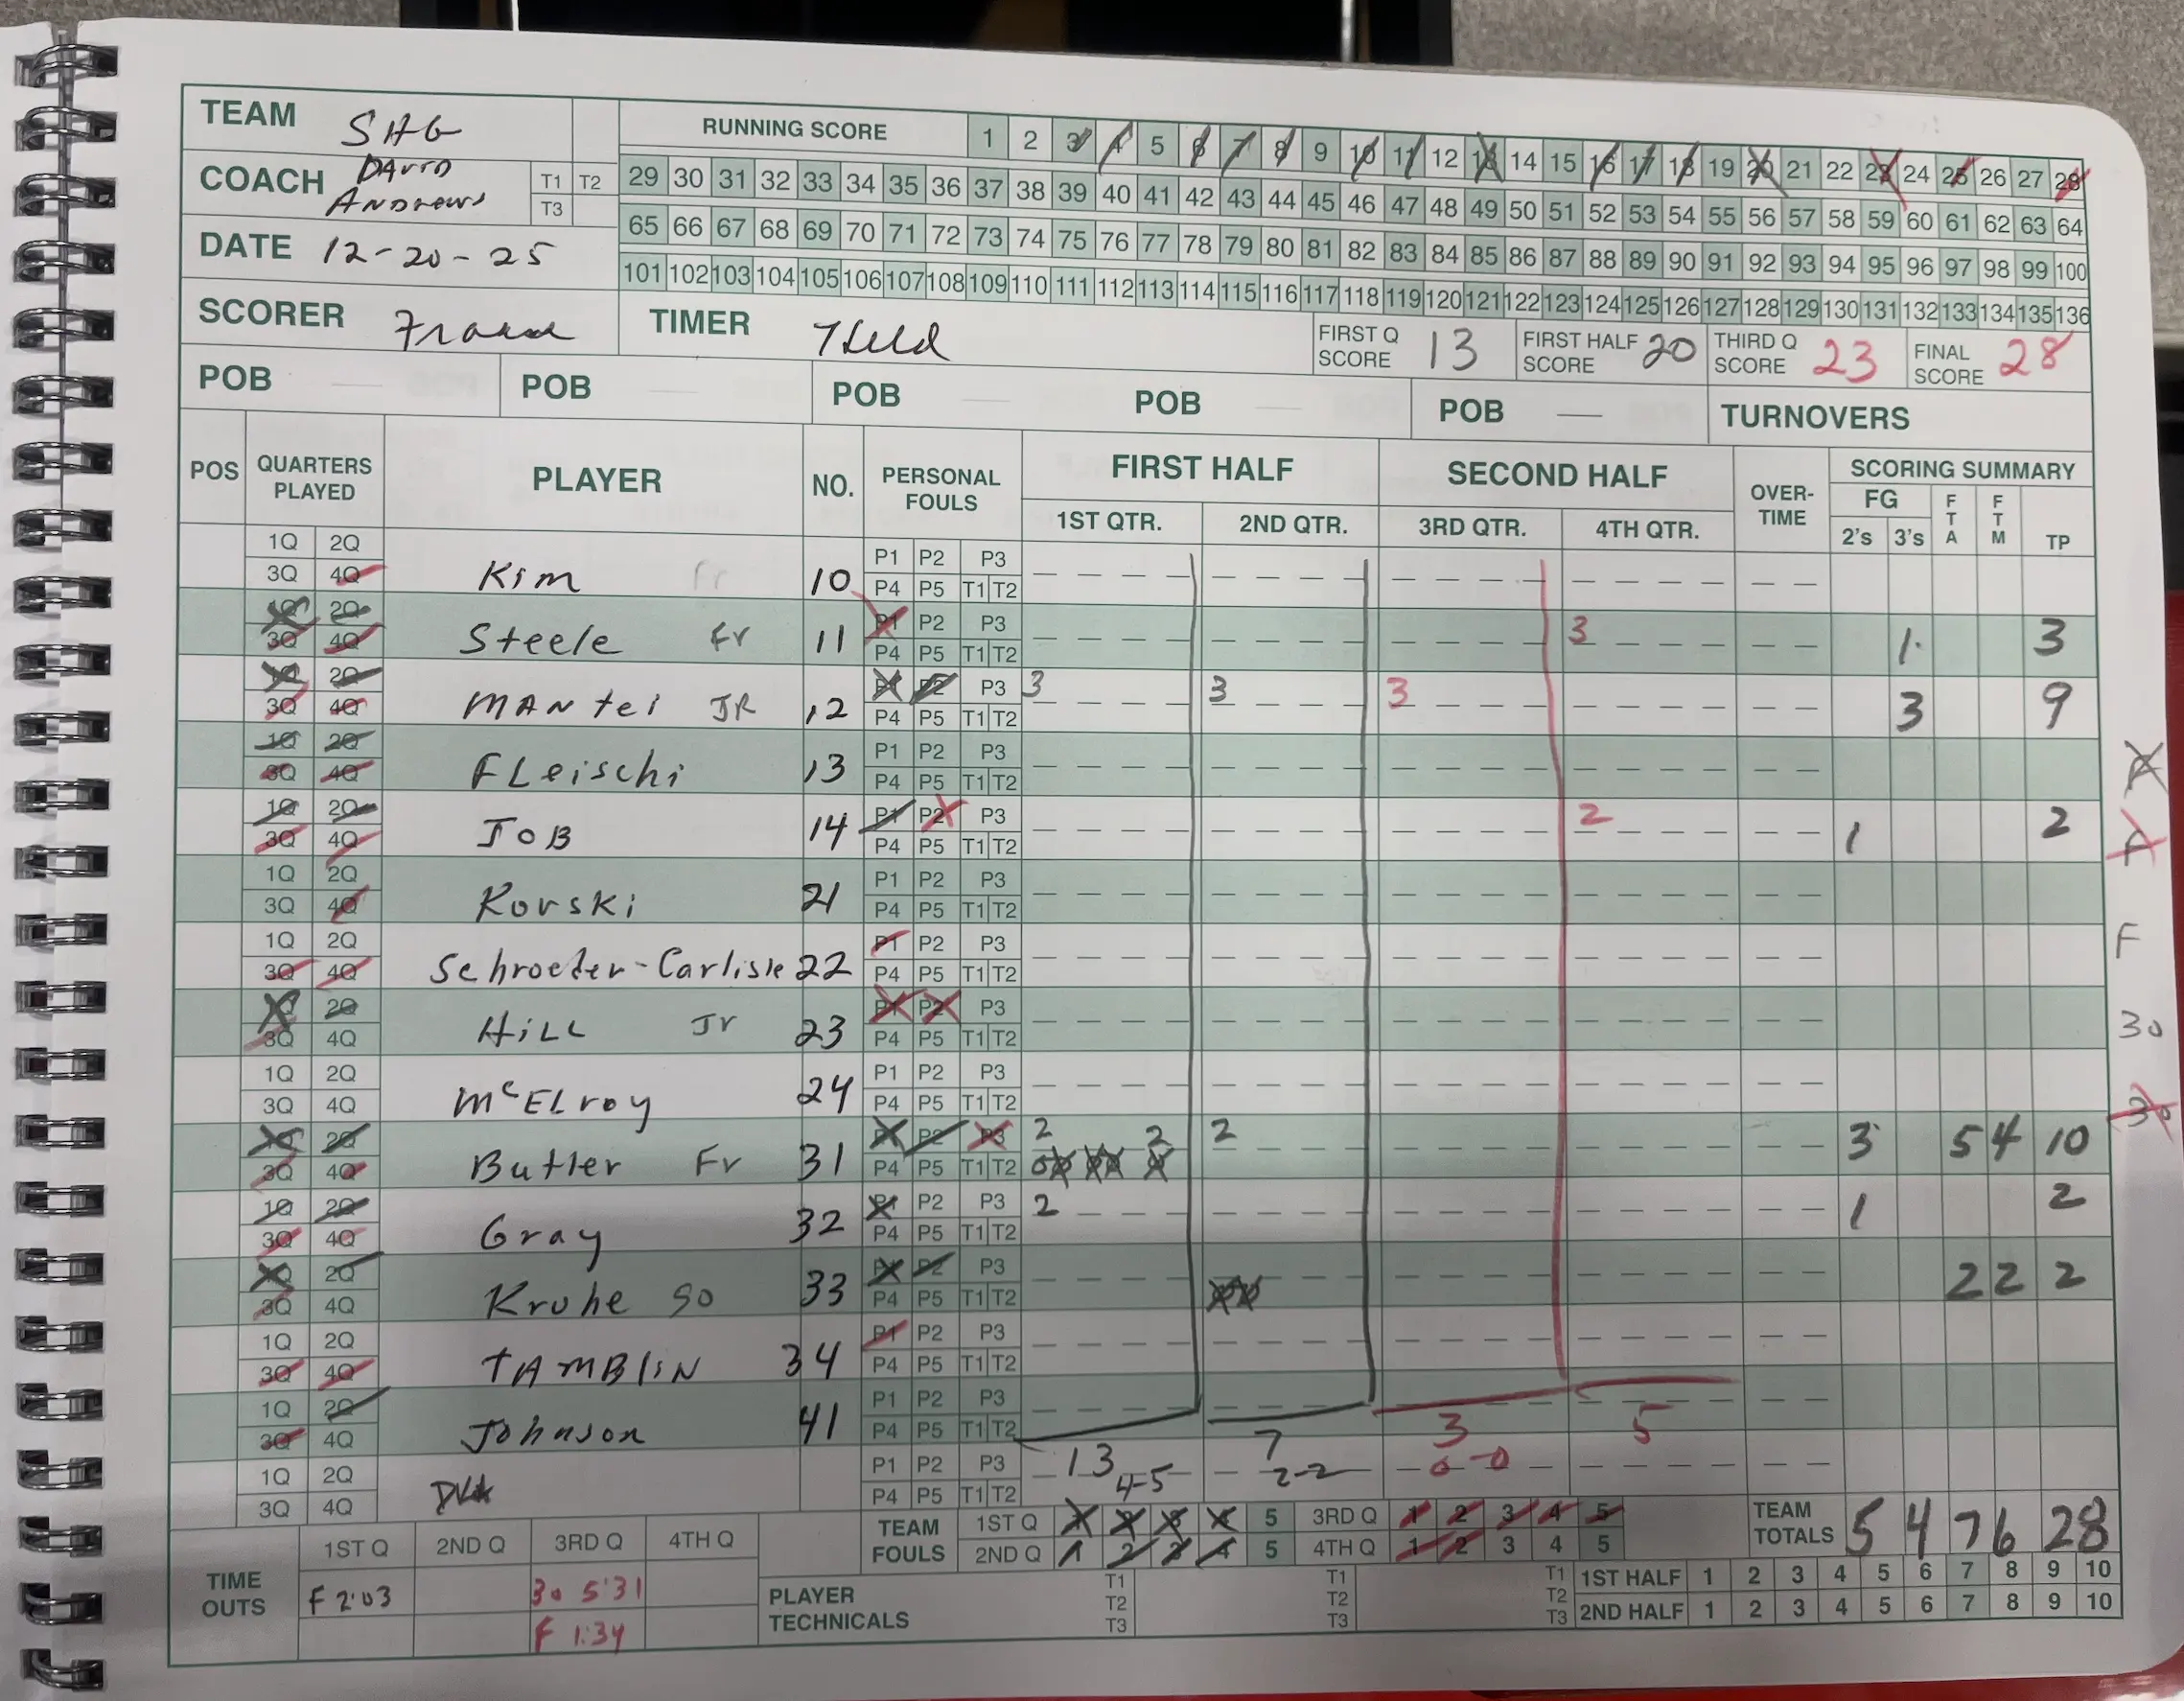 TEAM SHG
COACH DAVID ANDREWS T1 T2 T3
DATE 12-20-25
SCORER
TIMER
RUNNING SCORE 1 2 3 4 5 6 7 8 9 10 11 12 13 14 15 16 17 18 19 20 21 22 23 24 25 26 27 28
29 30 31 32 33 34 35 36 37 38 39 40 41 42 43 44 45 46 47 48 49 50 51 52 53 54 55 56 57 58 59 60 61 62 63 64
65 66 67 68 69 70 71 72 73 74 75 76 77 78 79 80 81 82 83 84 85 86 87 88 89 90 91 92 93 94 95 96 97 98 99 100
101 102 103 104 105 106 107 108 109 110 111 112 113 114 115 116 117 118 119 120 121 122 123 124 125 126 127 128 129 130 131 132 133 134 135 136
FIRST Q SCORE 13 FIRST HALF SCORE 20 THIRD Q SCORE 23 FINAL SCORE 28
POB — POB — POB — POB — POB — TURNOVERS
POS QUARTERS PLAYED PLAYER NO. PERSONAL FOULS FIRST HALF SECOND HALF OVER-TIME SCORING SUMMARY
1ST QTR. 2ND QTR. 3RD QTR. 4TH QTR. FG 2's 3's FTA FTM TP
1Q 2Q 3Q 4Q Kim Fr 10 P1 P2 P3 P4 P5 T1 T2
1Q 2Q 3Q 4Q Steele Fr 11 P1 P2 P3 P4 P5 T1 T2 3 1 3
1Q 2Q 3Q 4Q MANtei JR 12 P1 P2 P3 P4 P5 T1 T2 3 3 3 3 9
1Q 2Q 3Q 4Q FLeischi 13 P1 P2 P3 P4 P5 T1 T2
1Q 2Q 3Q 4Q JOB 14 P1 P2 P3 P4 P5 T1 T2 2 1 2
1Q 2Q 3Q 4Q Rovski 21 P1 P2 P3 P4 P5 T1 T2
1Q 2Q 3Q 4Q Schroeder-Carlisle 22 P1 P2 P3 P4 P5 T1 T2 F
1Q 2Q 3Q 4Q HiLL Jr 23 P1 P2 P3 P4 P5 T1 T2 30
1Q 2Q 3Q 4Q McELroy 24 P1 P2 P3 P4 P5 T1 T2 30
1Q 2Q 3Q 4Q Butler Fr 31 P1 P2 P3 P4 P5 T1 T2 2 2 2 3 5 4 10
1Q 2Q 3Q 4Q Gray 32 P1 P2 P3 P4 P5 T1 T2 2 1 2
1Q 2Q 3Q 4Q Kruhe SO 33 P1 P2 P3 P4 P5 T1 T2 2 2 2
1Q 2Q 3Q 4Q TAMBliN 34 P1 P2 P3 P4 P5 T1 T2
1Q 2Q 3Q 4Q Johnson 41 P1 P2 P3 P4 P5 T1 T2
1Q 2Q 3Q 4Q P1 P2 P3 P4 P5 T1 T2 13 4-5 7 2-2 3 0-0 5
TEAM FOULS 1ST Q 1 2 3 4 5 3RD Q 1 2 3 4 5
2ND Q 1 2 3 4 5 4TH Q 1 2 3 4 5
TEAM TOTALS 5 4 7 6 28
TIME OUTS 1ST Q 2ND Q 3RD Q 4TH Q
F 2:03 30 5:31
F 1:34
PLAYER TECHNICALS T1 T2 T3 T1 T2 T3 T1 T2 T3
1ST HALF 1 2 3 4 5 6 7 8 9 10
2ND HALF 1 2 3 4 5 6 7 8 9 10